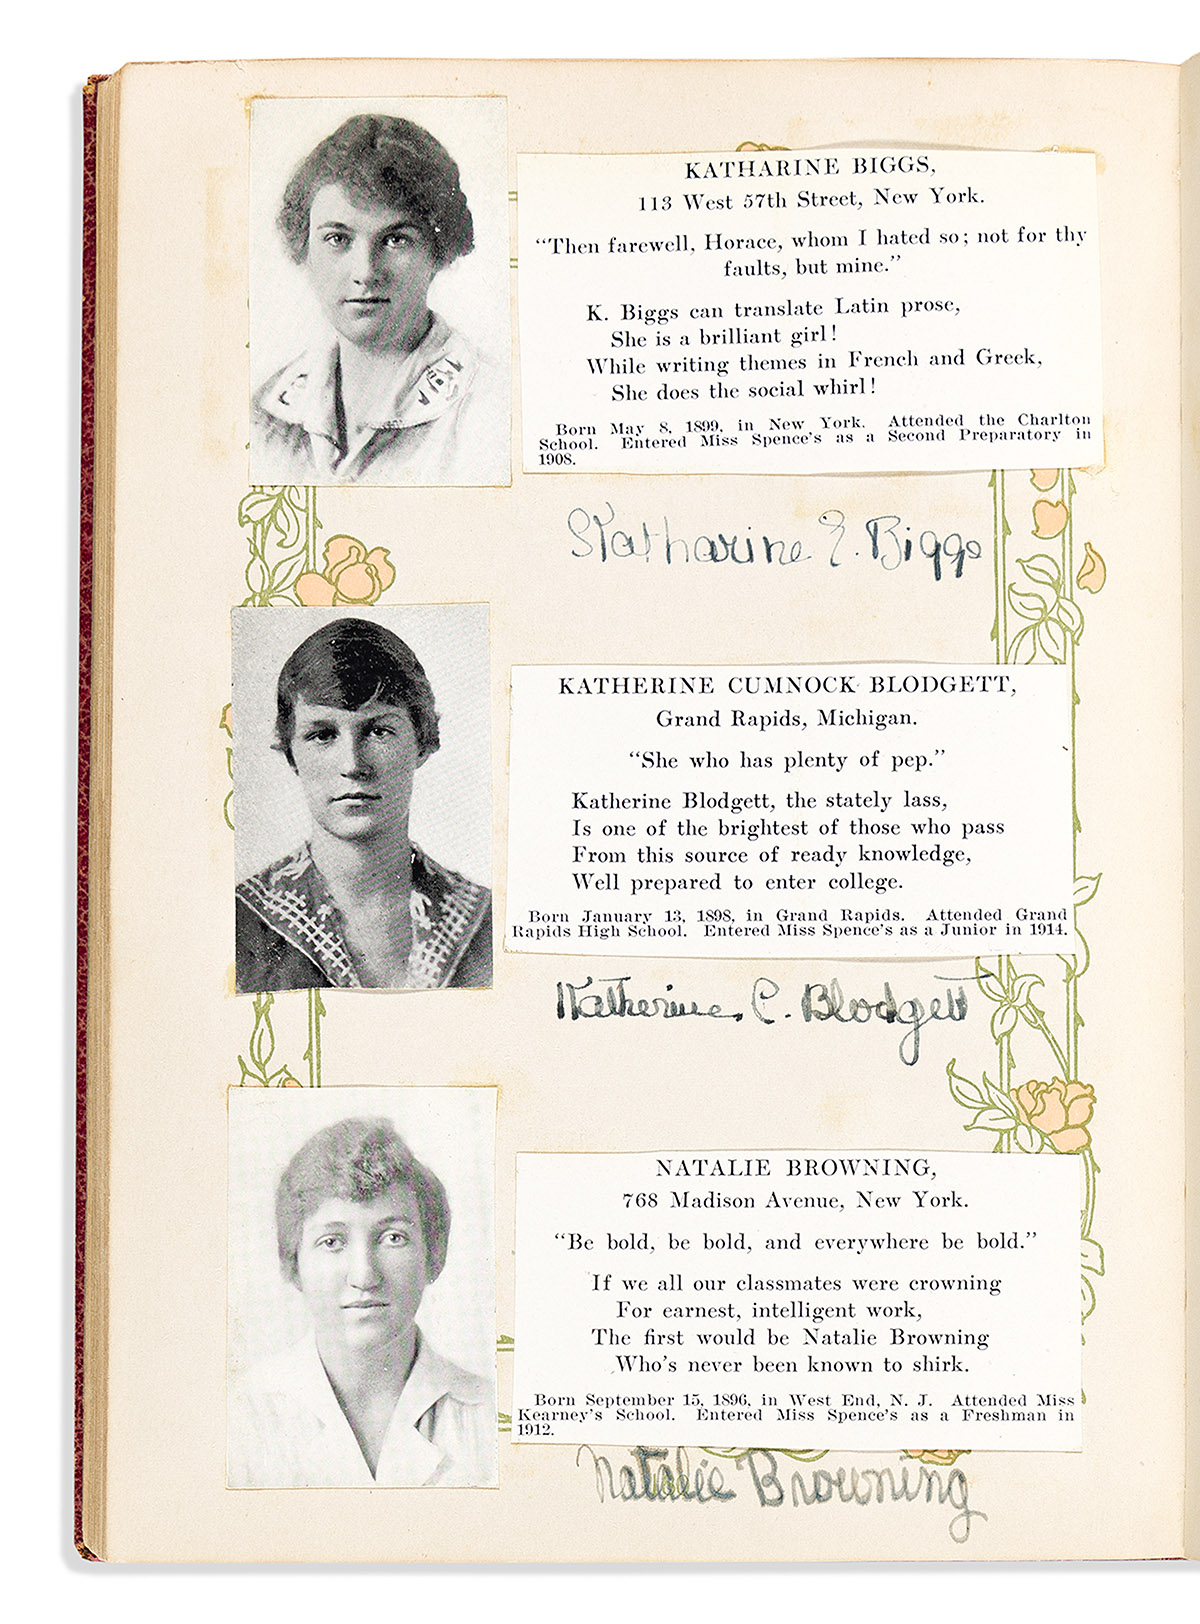 KATHARINE BIGGS,
113 West 57th Street, New York.
"Then farewell, Horace, whom I hated so; not for thy
faults, but mine."
K. Biggs can translate Latin prose,
She is a brilliant girl!
While writing themes in French and Greek,
She does the social whirl!
Born May 8, 1899, in New York. Attended the Charlton
School. Entered Miss Spence's as a Second Preparatory in
1908.
Katharine E. Biggs
KATHERINE CUMNOCK BLODGETT,
Grand Rapids, Michigan.
"She who has plenty of pep."
Katherine Blodgett, the stately lass,
Is one of the brightest of those who pass
From this source of ready knowledge,
Well prepared to enter college.
Born January 13, 1898, in Grand Rapids. Attended Grand
Rapids High School. Entered Miss Spence's as a Junior in 1914.
Katherine C. Blodgett
NATALIE BROWNING,
768 Madison Avenue, New York.
"Be bold, be bold, and everywhere be bold."
If we all our classmates were crowning
For earnest, intelligent work,
The first would be Natalie Browning
Who's never been known to shirk.
Born September 15, 1896, in West End, N. J. Attended Miss
Kearney's School. Entered Miss Spence's as a Freshman in
1912.
Natalie Browning